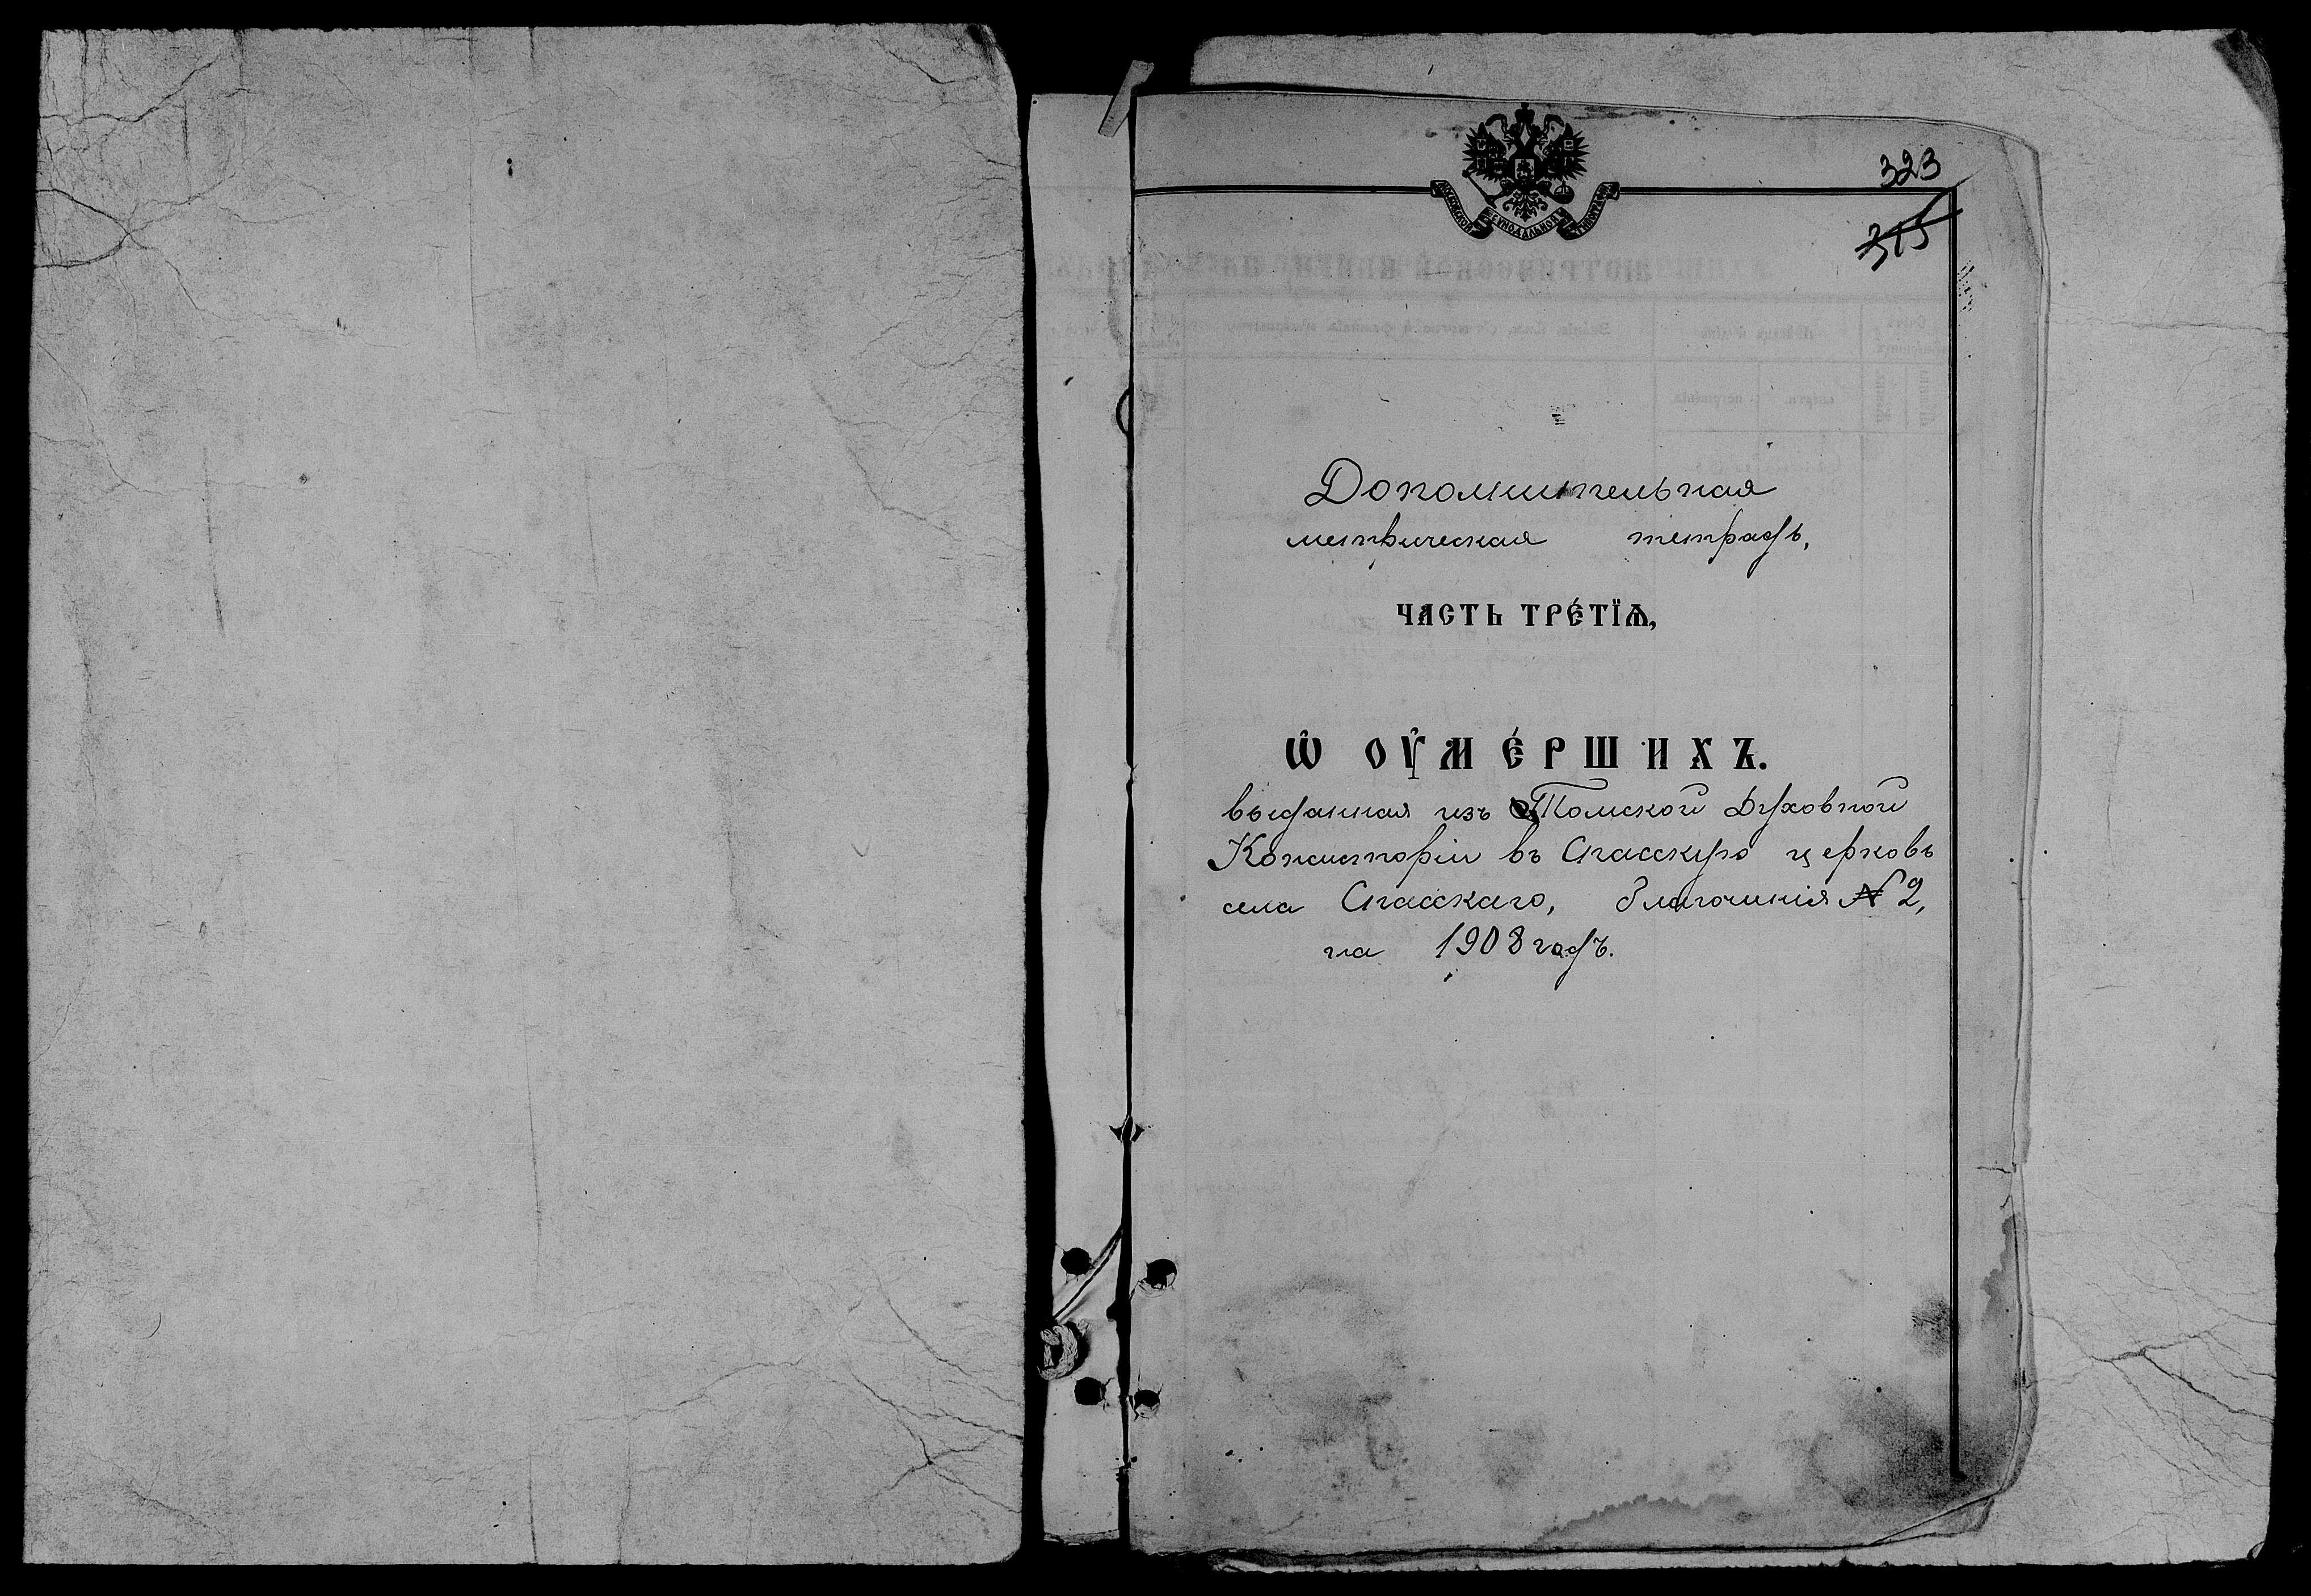 323
315
МОСКОВСКОЙ СѴНОДАЛЬНОЙ ТИПОГРАФІИ
Дополнительная
метрическая тетрадь,
ЧАСТЬ ТРЕ́ТЇѦ,
Ѡ҆ ОУ҆МЕ́РШИХЪ.
выданная изъ Томской Духовной
Консисторіи въ Спасскую церковь
села Спасскаго, благочинія № 2,
на 1908 годъ.